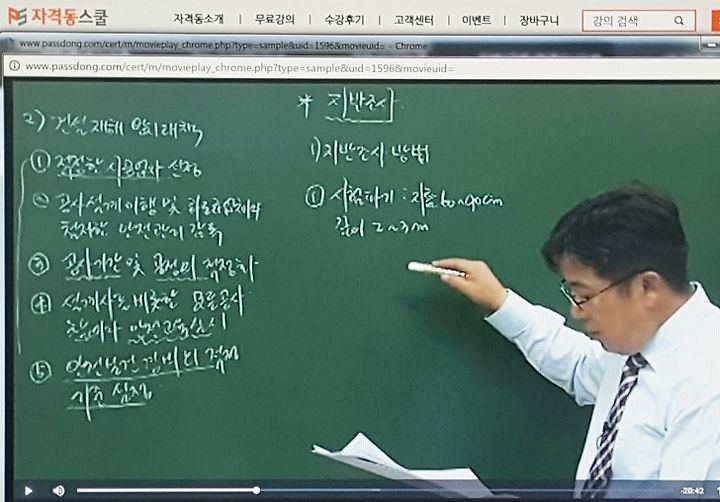 자격동스쿨
자격동소개 | 무료강의 | 수강후기 | 고객센터 | 이벤트 | 장바구니
강의 검색
www.passdong.com/cert/m/movieplay_chrome.php?type=sample&uid=1596&movieuid= - Chrome
www.passdong.com/cert/m/movieplay_chrome.php?type=sample&uid=1596&movieuid=
2) 건설재해 방지대책
① 적정한 시공업자 선정
② 공사설계이행 및
철저한 안전관리 감독
③ 공사기간 및 공정의 적정화
④ 설계사는 비롯한 모든공사
안전교육실시
⑤ 안전보건 의 적정
기준 설정
* 지반조사
1) 지반조사 방법
① 시험파기 : 지름 60~90cm
깊이 2~3m
-20:42